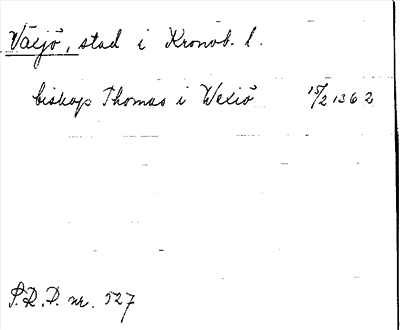 Växjö, stad i Kronob. l.
biskop Thomas i Wexiö 15/2 1362
S.R.P. nr. 527